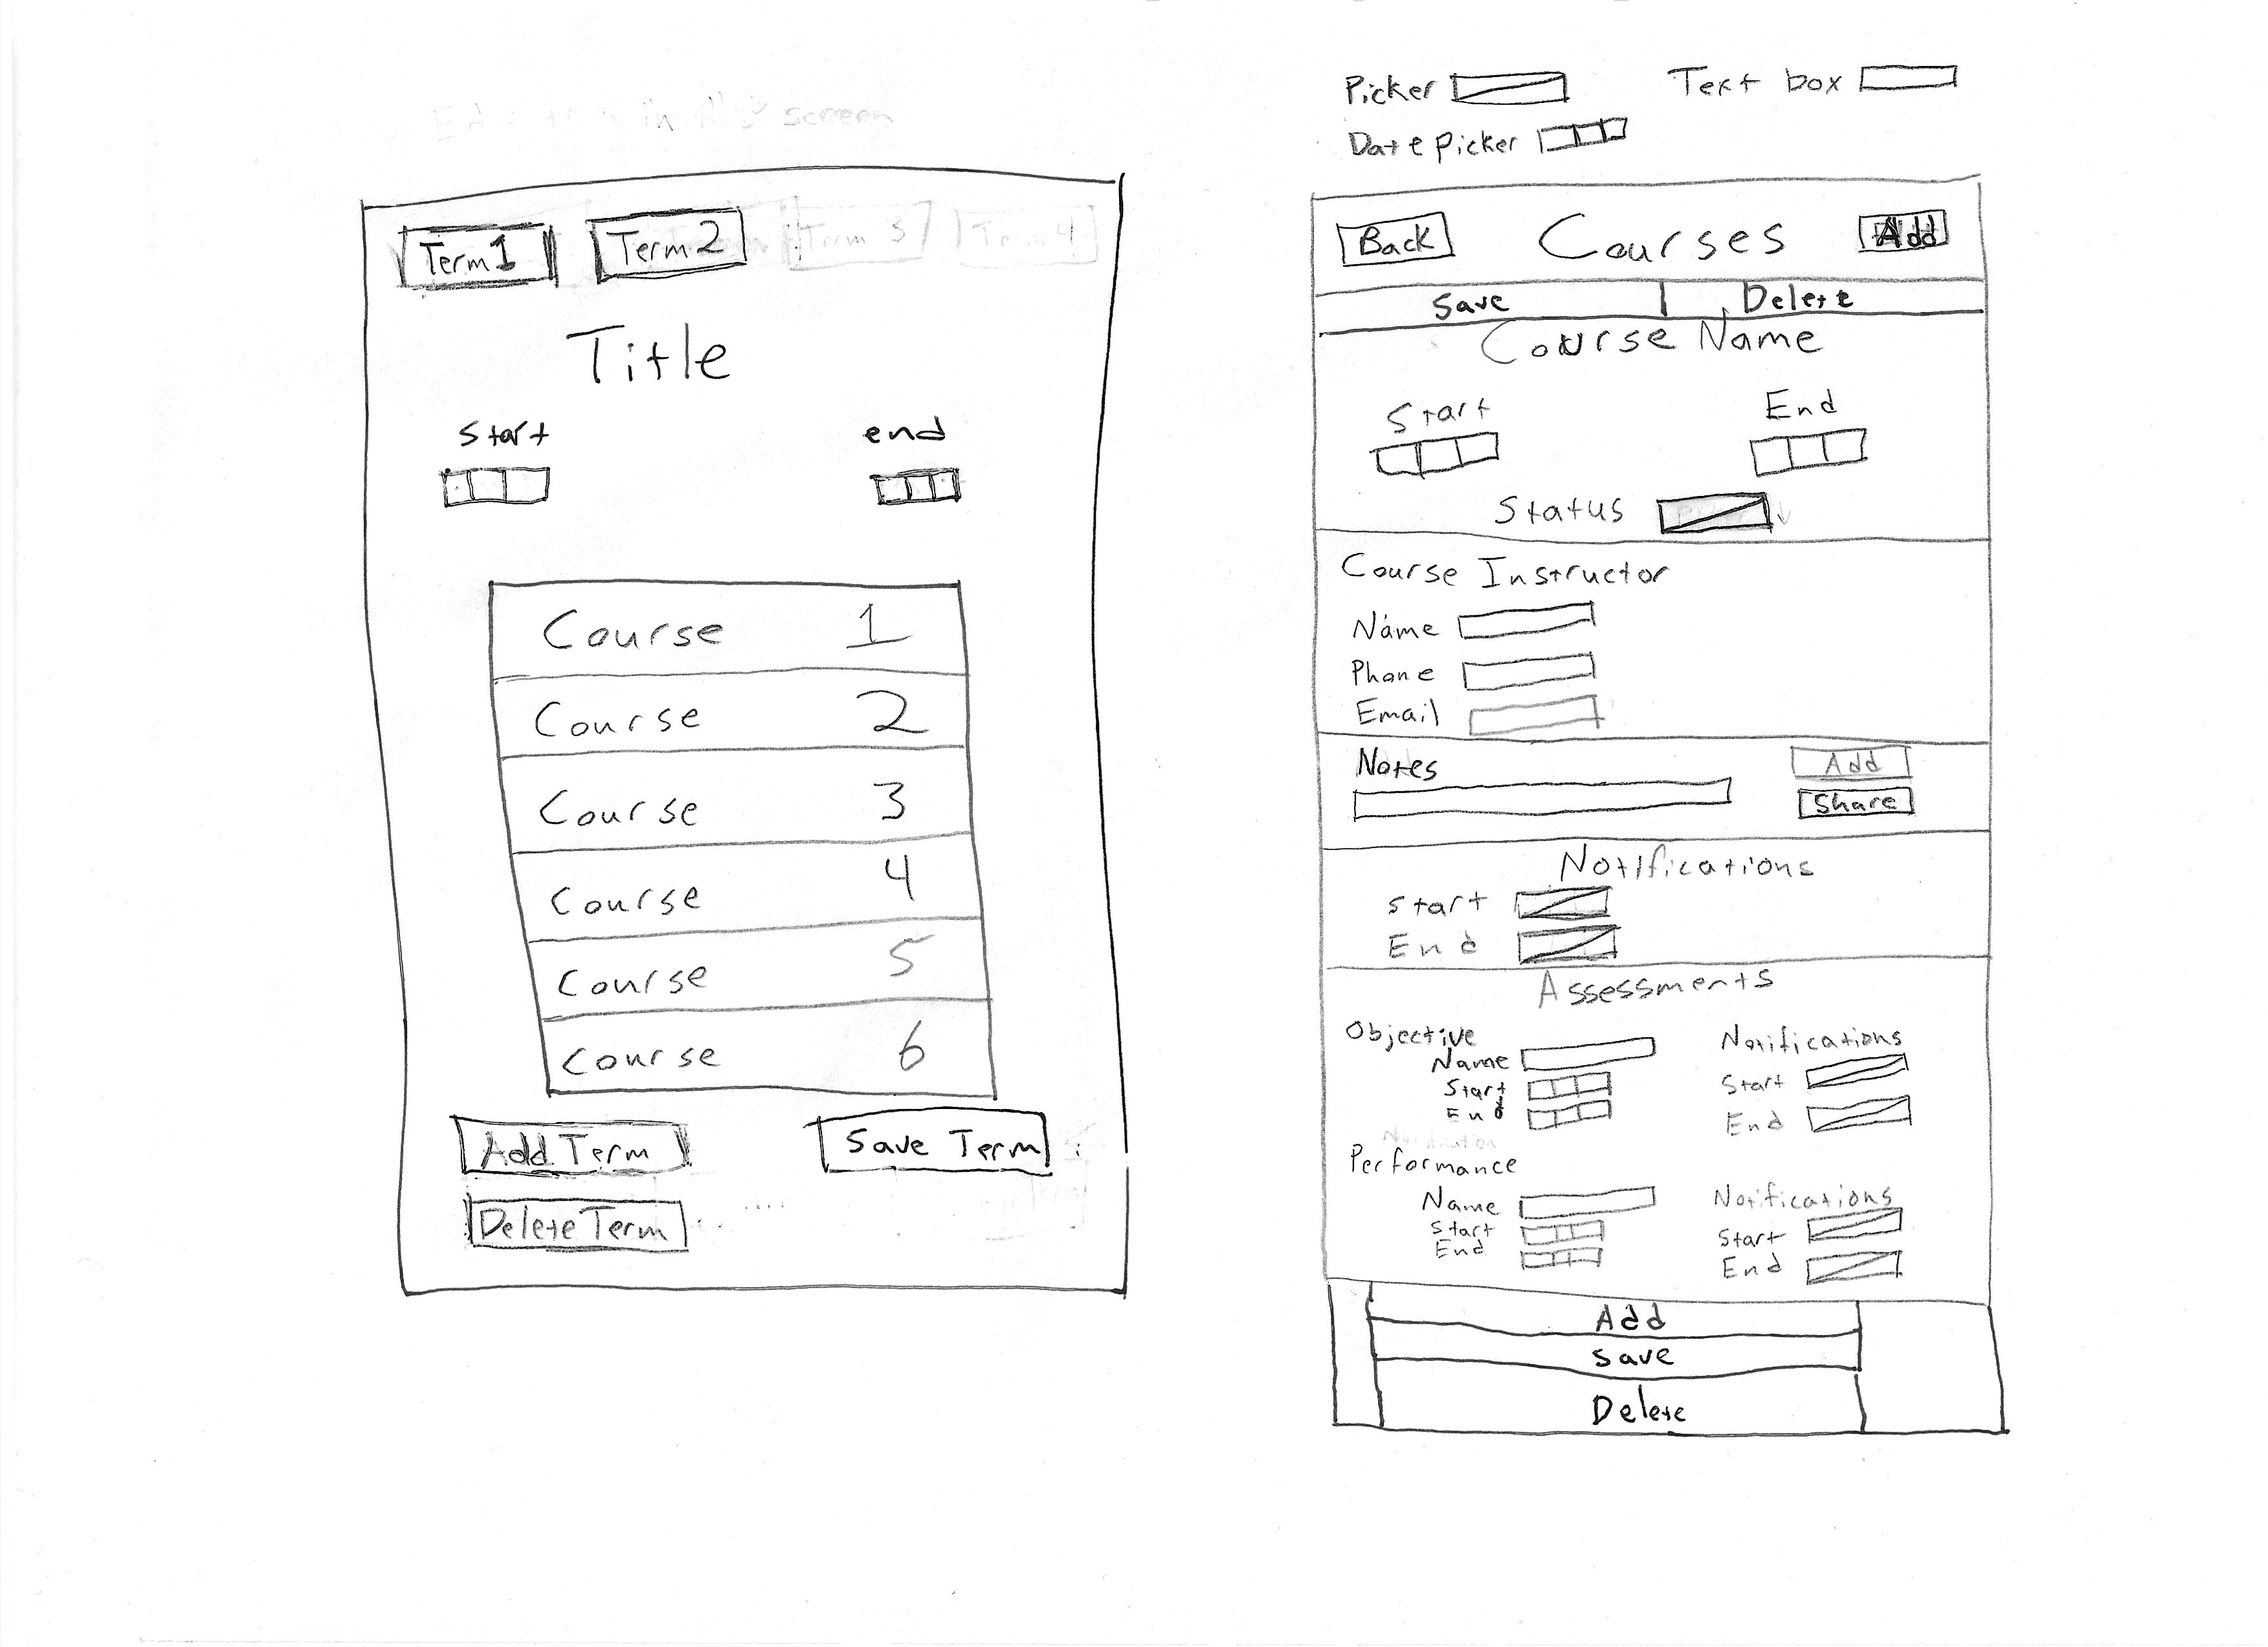 in this screen
Term 1 Term 2 Term 3 Term 4
Title
start end
Course 1
Course 2
Course 3
Course 4
Course 5
Course 6
Add Term Save Term
Delete Term
Picker Text box
Date Picker
Back Courses Add
Save Delete
Course Name
Start End
Status
Course Instructor
Name
Phone
Email
Notes Add
Share
Notifications
Start
End
Assessments
Objective Notifications
Name
Start Start
End End
Performance
Name Notifications
Start Start
End End
Add
Save
Delete